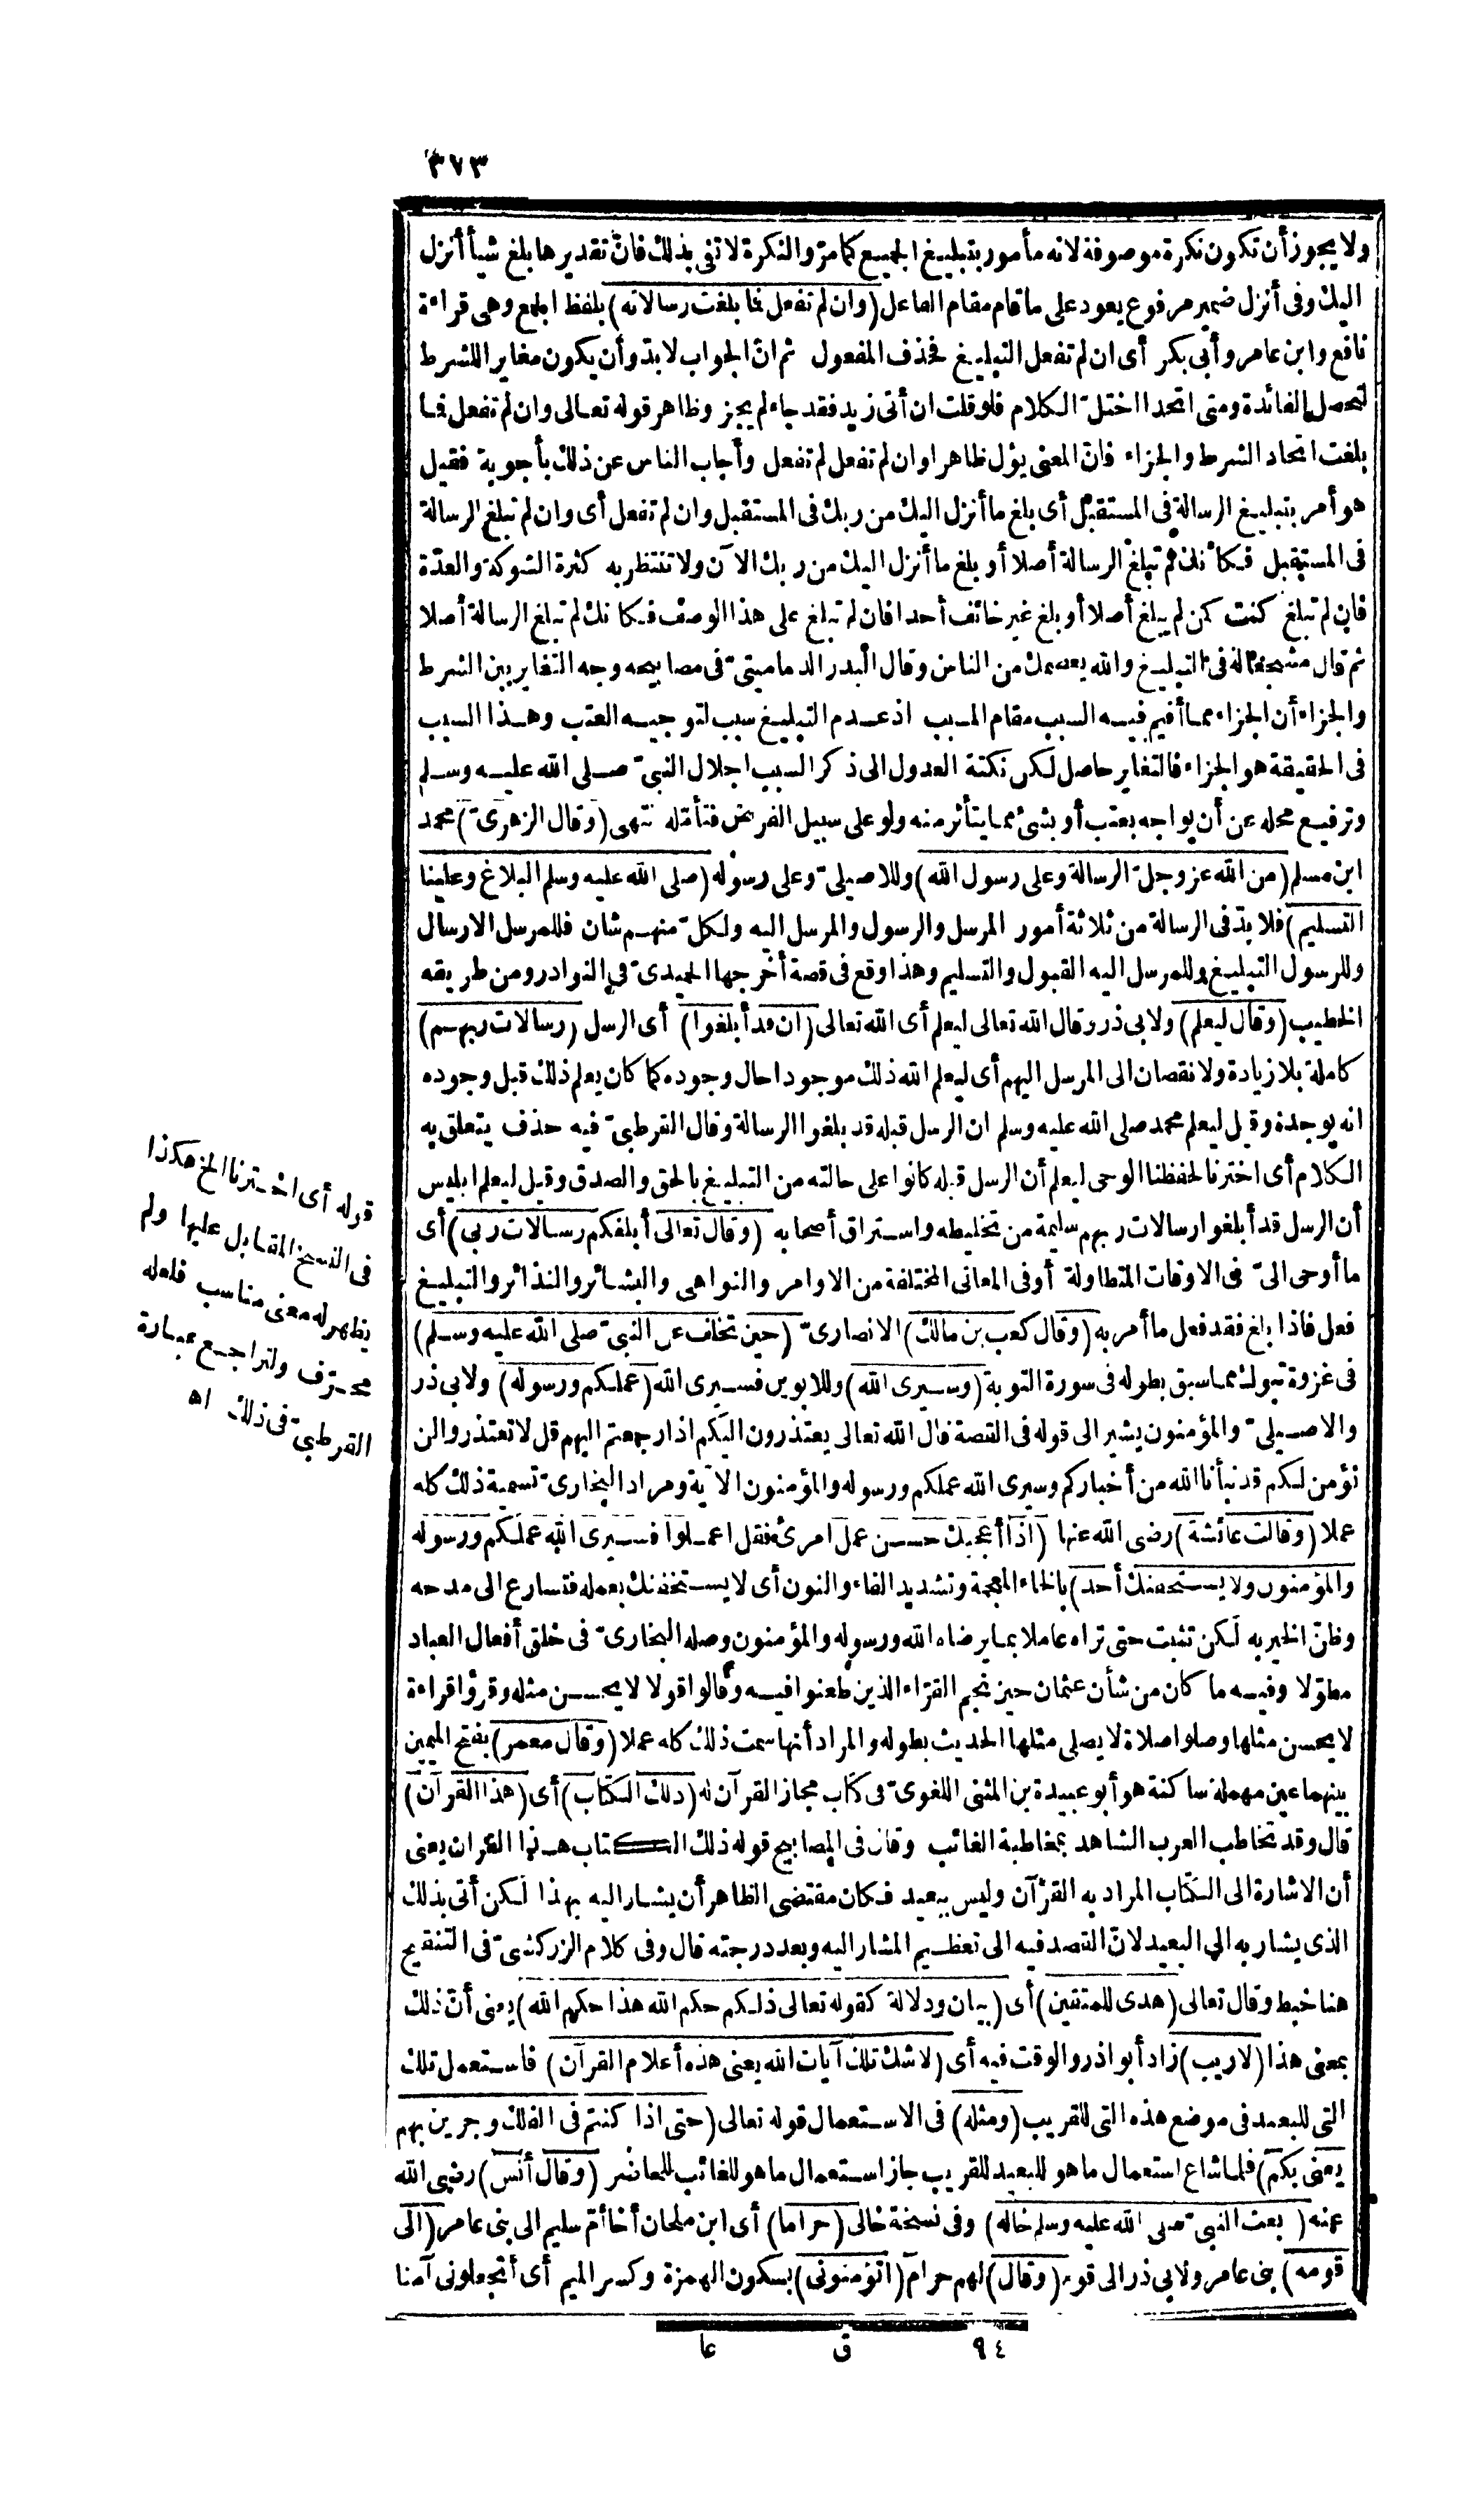 ٣٧٣
ولا يجوز أن تكون نكرة موصوفة لانه مأمور بتبليغ الجميع كما مرّ والنكرة لا تفى بذلك فانّ تقديرها بلغ شيأ أنزل
اليك وفى أنزل ضمير مرفوع يعود على ما قام مقام الفاعل (وان لم تفعل فما بلغت رسالاته) بلفظ الجمع وهى قراءة
نافع وابن عامر وأبى بكر أى ان لم تفعل التبليغ فحذف المفعول ثم انّ الجواب لا بدّ وأن يكون مغاير اللشرط
لتحصل الفائدة ومتى اتحدا اختلّ الكلام فلو قلت ان أتى زيد فقد جاء لم يجز وظاهر قوله تعالى وان لم تفعل فما
بلغت اتحاد الشرط والجزاء فانّ المعنى يؤل ظاهرا وان لم تفعل لم تفعل وأجاب الناس عن ذلك بأجوبة فقيل
هو أمر بتبليغ الرسالة فى المستقبل أى بلغ ما أنزل اليك من ربك فى المستقبل وان لم تفعل أى وان لم تبلغ الرسالة
فى المستقبل فكأنك لم تبلغ الرسالة أصلا أو بلغ ما أنزل اليك من ربك الآن ولا تنتظر به كثرة الشوكة والعدّة
فان لم تبلغ كنت كمن لم يبلغ أصلا أو بلغ غير خائف أحدا فان لم تبلغ على هذا الوصف فكانك لم تبلغ الرسالة أصلا
ثم قال مشجعا له فى التبليغ والله يعصمك من الناس وقال البدر الدمامينىّ فى مصابيحه وجه التغاير بين الشرط
والجزاء أن الجزاء مما أقيم فيه السبب مقام المسبب اذ عدم التبليغ سبب لتوجيه العتب وهذا السبب
فى الحقيقة هو الجزاء فالتغاير حاصل لكن نكتة العدول الى ذكر السبب اجلال النبىّ صلى الله عليه وسلم
وترفيع محله عن أن يواجه بعتب أو بشئ مما يتأثر منه ولو على سبيل الفرض فتأمّله انتهى (وقال الزهرىّ) محمد
ابن مسلم (من الله عز وجلّ الرسالة وعلى رسول الله) وللاصيلىّ وعلى رسوله (صلى الله عليه وسلم البلاغ وعلينا
التسليم) فلا بدّ فى الرسالة من ثلاثة أمور المرسل والرسول والمرسل اليه ولكلّ منهم شان فللمرسل الارسال
وللرسول التبليغ وللمرسل اليه القبول والتسليم وهذا وقع فى قصة أخرجها الحميدىّ فى النوادر ومن طريقه
الخطيب (وقال ليعلم) ولابى ذر وقال الله تعالى ليعلم أى الله تعالى (ان قد أبلغوا) أى الرسل (رسالات ربهم)
كاملة بلا زيادة ولا نقصان الى المرسل اليهم أى ليعلم الله ذلك موجودا حال وجوده كما كان يعلم ذلك قبل وجوده
انه يوجده وقيل ليعلم محمد صلى الله عليه وسلم ان الرسل قبله قد بلغوا الرسالة وقال القرطبىّ فيه حذف يتعلق به
الكلام أى اخترنا لحفظنا الوحى ليعلم أن الرسل قبله كانوا على حالته من التبليغ بالحق والصدق وقيل ليعلم ابليس
أن الرسل قد أبلغوا رسالات ربهم سليمة من تخليطه واستراق أصحابه (وقال تعالى أبلغكم رسالات ربى) أى
ما أوحى الىّ فى الاوقات المتطاولة أو فى المعانى المختلفة من الاوامر والنواهى والبشائر والنذائر والتبليغ
فعل فاذا بلغ فقد فعل ما أمر به (وقال كعب بن مالك) الانصارىّ (حين تخلف عن النبىّ صلى الله عليه وسلم)
فى غزوة تبوك مما سبق بطوله فى سورة التوبة (وسيرى الله) وللابوين فسيرى الله (عملكم ورسوله) ولابى ذر
والاصيلىّ والمؤمنون يشير الى قوله فى القصة قال الله تعالى يعتذرون اليكم اذا رجعتم اليهم قل لا تعتذروا لن
نؤمن لكم قد نبأنا الله من أخباركم وسيرى الله عملكم ورسوله والمؤمنون الآية ومراد البخارىّ تسمية ذلك كله
عملا (وقالت عائشة) رضى الله عنها (اذا أعجبك حسن عمل امرئ فقل اعملوا فسيرى الله عملكم ورسوله
والمؤمنون ولا يستخفنك أحد) بالخاء المعجمة وتشديد الفاء والنون أى لا يستخفنك بعمله فتسارع الى مدحه
وظنّ الخير به لكن تثبت حتى تراه عاملا بما يرضاه الله ورسوله والمؤمنون وصله البخارىّ فى خلق أفعال العباد
مطوّلا وفيه ما كان من شأن عثمان حين نجم القرّاء الذين طعنوا فيه وقالوا قولا لا يحسن مثله وقرؤا قراءة
لا يحسن مثلها وصلوا صلاة لا يصلى مثلها الحديث بطوله والمراد أنها سمت ذلك كله عملا (وقال معمر) بفتح الميمين
بينهما عين مهملة ساكنة هو أبو عبيدة بن المثنى اللغوىّ فى كتاب مجاز القرآن له (ذلك الكتاب) أى (هذا القرآن)
قال وقد تخاطب العرب الشاهد بمخاطبة الغائب وقال فى المصابيح قوله ذلك الكتاب هذا القرآن يعنى
أن الاشارة الى الكتاب المراد به القرآن وليس ببعيد فكان مقتضى الظاهر أن يشار اليه بهذا لكن أتى بذلك
الذى يشار به الى البعيد لانّ القصد فيه الى تعظيم المشار اليه وبعد درجته قال وفى كلام الزركشىّ فى التنقيح
هنا خبط وقال تعالى (هدى للمتقين) أى (بيان ودلالة كقوله تعالى ذلكم حكم الله هذا حكم الله) يعنى أنّ ذلك
بمعنى هذا (لا ريب) زاد أبوا ذر والوقت فيه أى (لا شك تلك آيات الله يعنى هذه أعلام القرآن) فاستعمل تلك
التى للبعيد فى موضع هذه التى للقريب (ومثله) فى الاستعمال قوله تعالى (حتى اذا كنتم فى الفلك وجرين بهم
يعنى بكم) فلما شاع استعمال ما هو للبعيد للقريب جاز استعمال ما هو للغائب للحاضر (وقال أنس) رضى الله
عنه (بعث النبىّ صلى الله عليه وسلم خاله) وفى نسخة خالى (حراما) أى ابن ملحان أخا أمّ سليم الى بنى عامر (الى
قومه) بنى عامر ولابى ذر الى قوم (وقال) لهم حرام (أتؤمنونى) بسكون الهمزة وكسر الميم أى أتجعلونى آمنا
قوله أى اخترنا الخ هكذا
فى النسخ المقابل عليها ولم
يظهر له معنى مناسب فلعله
محرّف ولتراجع عبارة
القرطبىّ فى ذلك اه
٩٤ ق عا